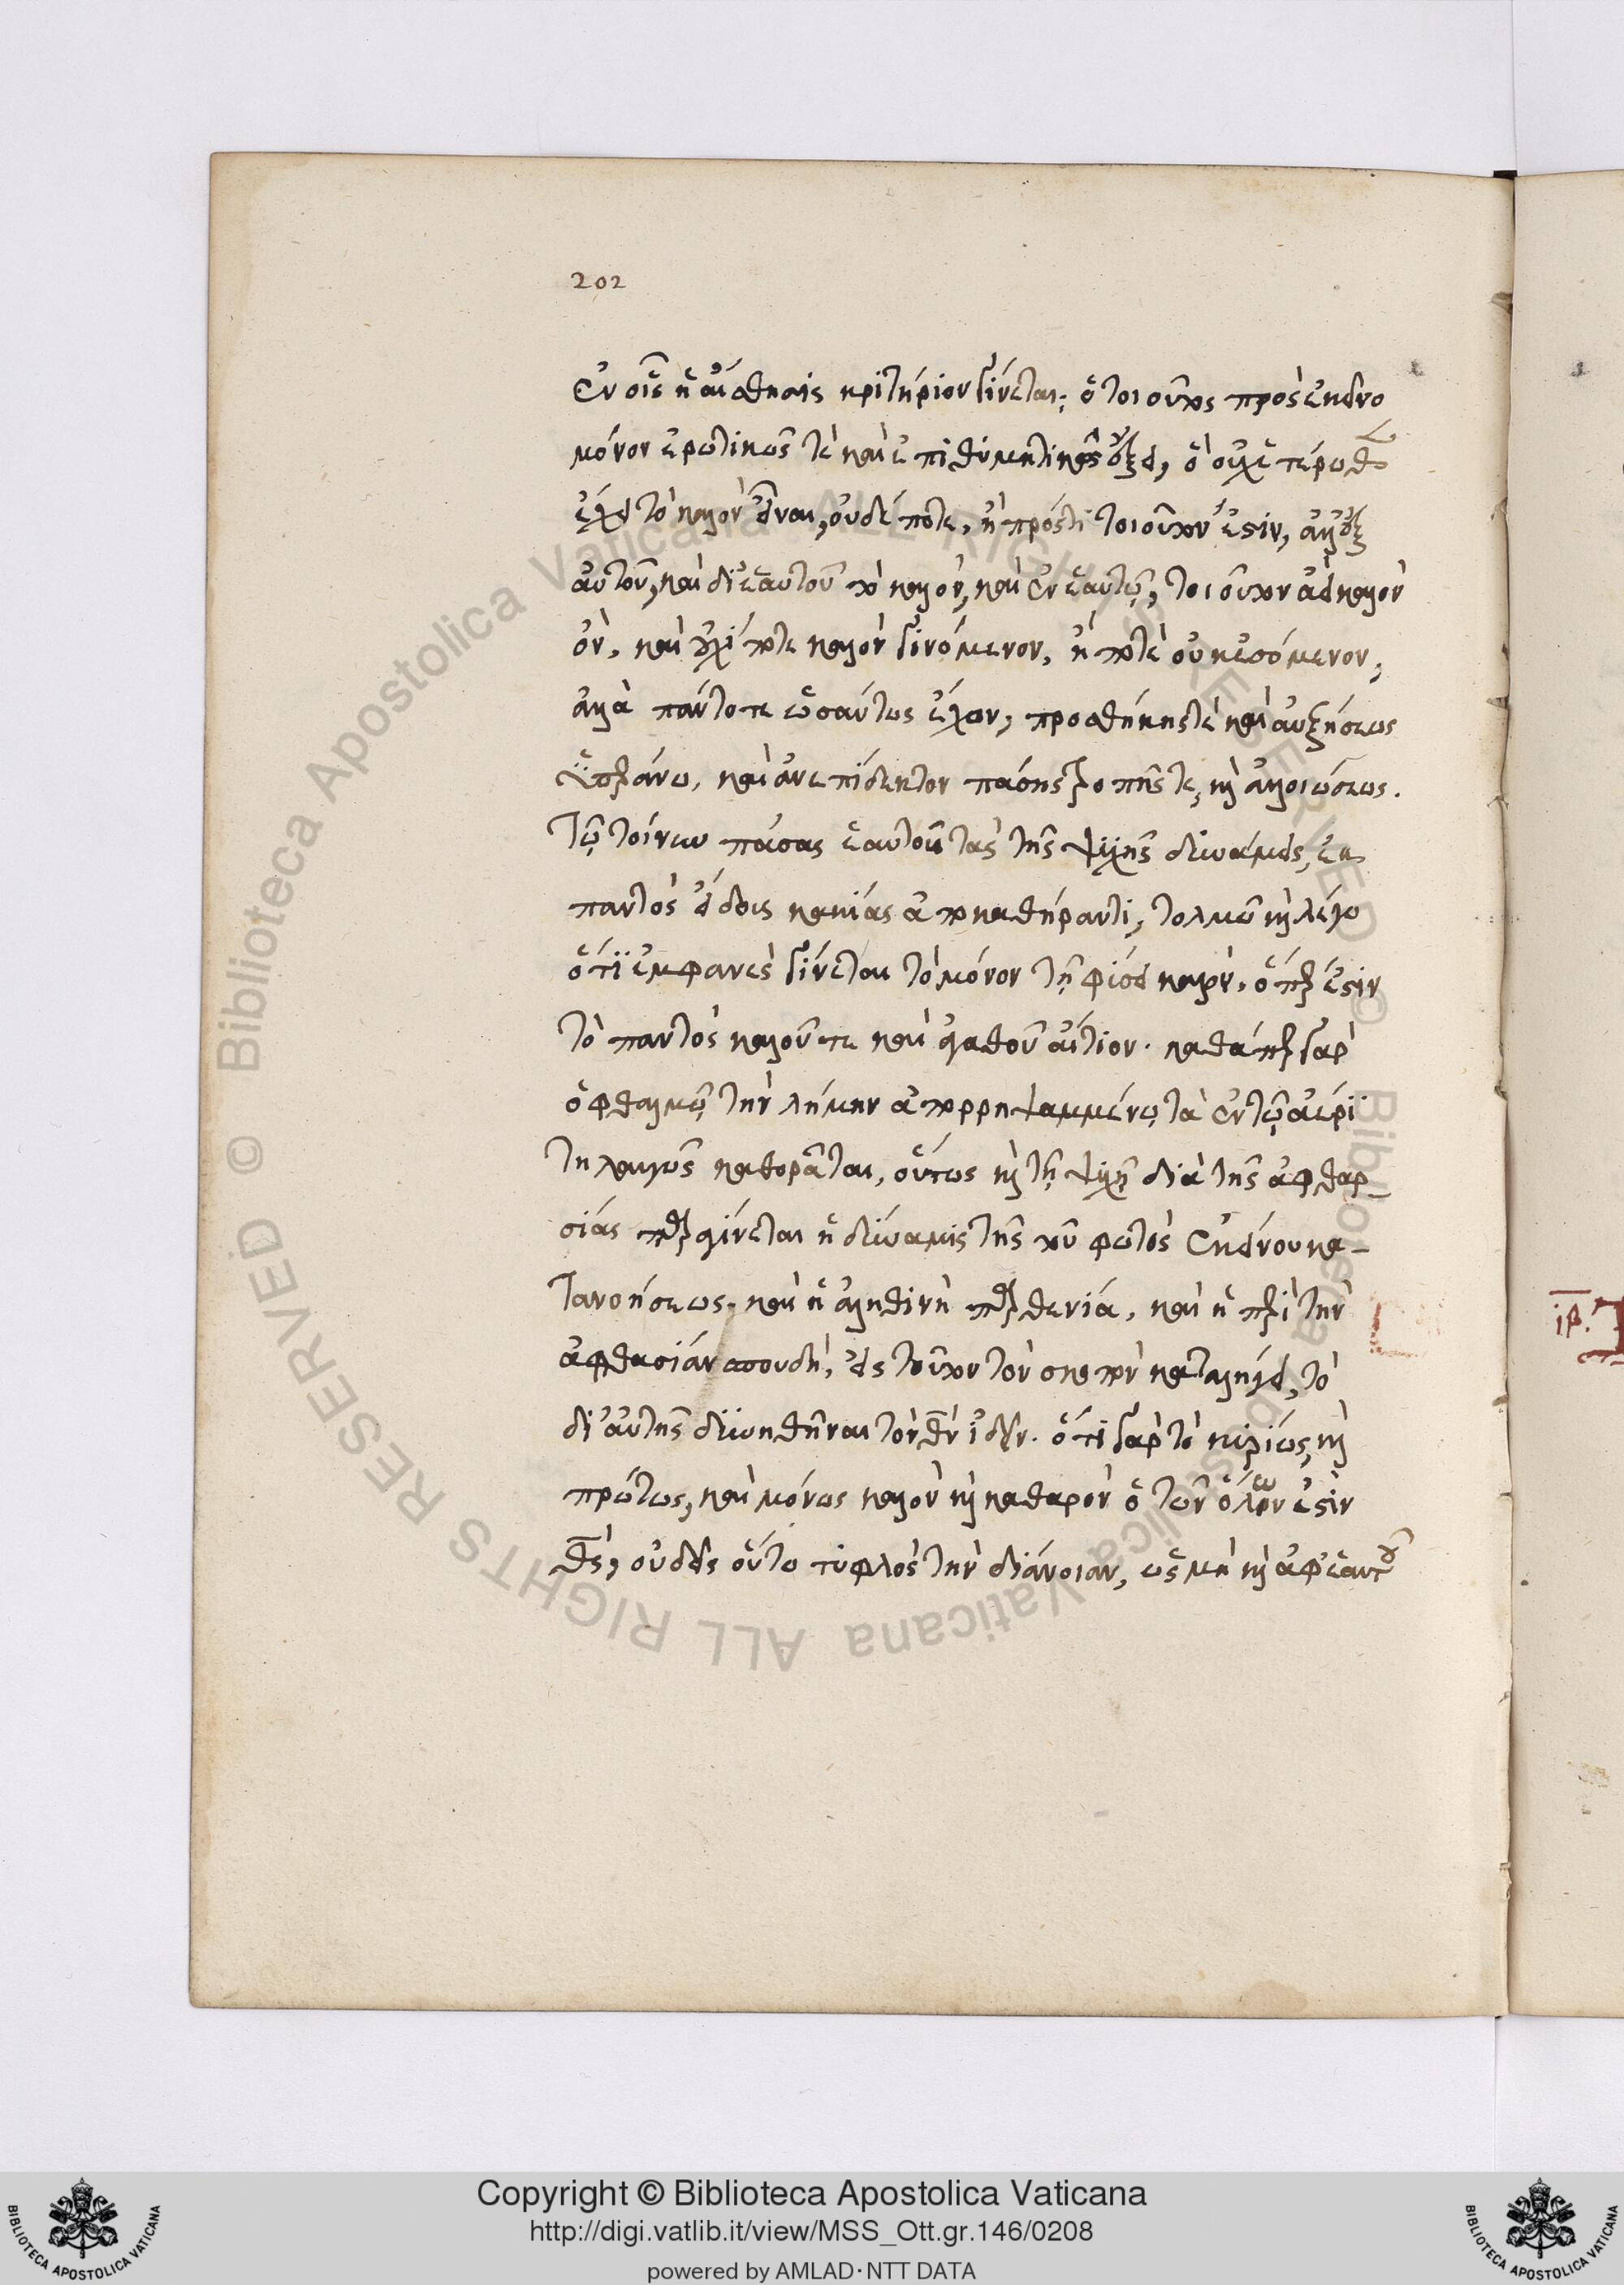 202
ἐν οἷς ἡ αἴσθησις κριτήριον γίνεται, ὁ τοιοῦτος πρὸς ἐκεῖνο
μόνον ἐρωτικῶς τὲ καὶ ἐπιθυμητικῶς ἕξει, ὃ οὐχ ἑτέρωθεν
ἔχει τὸ καλὸν εἶναι, οὐδέ ποτε, ἢ πρός τι τοιοῦτον ἐστὶν, ἀλλ' ἐξ
αὐτοῦ, καὶ δι' ἑαυτοῦ τὸ καλὸν, καὶ ἐν ἑαυτῷ, τοιοῦτον ἀεὶ καλὸν
ὂν, καὶ οὐχί ποτε καλὸν γινόμενον, ἤ ποτε οὐκ ἐσόμενον,
ἀλλὰ πάντοτε ὡσαύτως ἔχον, προσθήκης τὲ καὶ αὐξήσεως
ὑπεράνω, καὶ ἀνεπίδεκτον πάσης τροπῆς τε, καὶ ἀλλοιώσεως.
τῷ τοίνυν πάσας ἑαυτοῦ τὰς τῆς ψυχῆς δυνάμεις, ἐκ
παντὸς εἴδους κακίας ἀποκαθήραντι, τολμῶ καὶ λέγω
ὅτι ἐμφανὲς γίνεται τὸ μόνον τῇ φύσει καλὸν, ὅπερ ἐστὶν
τὸ παντὸς καλοῦ τε καὶ ἀγαθοῦ αἴτιον. καθάπερ γὰρ
ὀφθαλμῷ τὴν λήμην ἀπορρηψαμμένῳ τὰ ἐν τῷ ἀέρι
τηλαυγῶς καθορᾶται, οὕτως καὶ τῇ ψυχῇ διὰ τῆς ἀφθαρ-
σίας παραγίνεται ἡ δύναμις τῆς τοῦ φωτὸς ἐκείνου κα-
τανοήσεως, καὶ ἡ ἀληθινὴ παρθενία, καὶ ἡ περὶ τὴν
ἀφθασίαν σπουδὴ, εἰς τοῦτον τὸν σκοπὸν καταλήγει, τὸ
δι' αὐτῆς δυνηθῆναι τὸν θν ἰδεῖν. ὅτι γὰρ τὸ κυρίως, καὶ
πρώτως, καὶ μόνως καλὸν καὶ καθαρὸν ὁ τῶν ὅλων ἐστὶν
θς, οὐδεὶς οὕτω τυφλὸς τὴν διάνοιαν, ὡς μὴ καὶ ἀφ' ἑαυτοῦ
ιβ.
Copyright © Biblioteca Apostolica Vaticana
http://digi.vatlib.it/view/MSS_Ott.gr.146/0208
powered by AMLAD·NTT DATA
BIBLIOTECA APOSTOLICA VATICANA
BIBLIOTECA APOSTOLICA VATICANA
© Biblioteca Apostolica Vaticana ALL RIGHTS RESERVED © Biblioteca Apostolica Vaticana ALL RIGHTS RESERVED